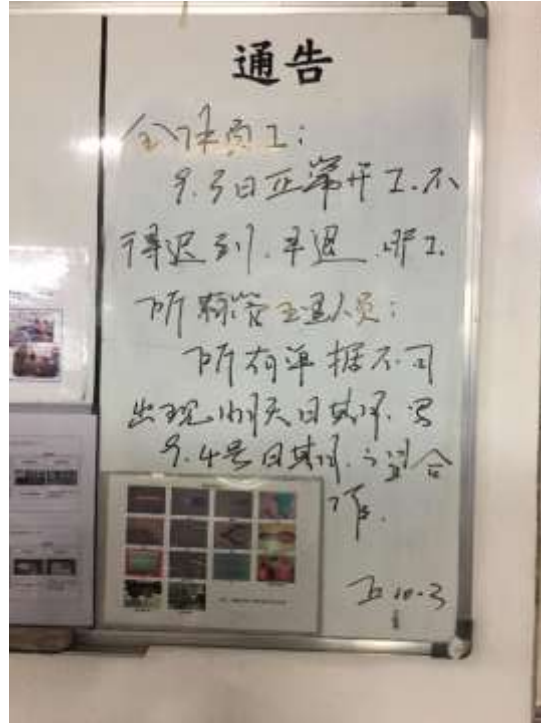 通告
全体员工:
9.3日正常开工.不
得迟到.早退.旷工
所有管理人员:
所有单据不可
出现明天日期.写
9.4号日期.
合
作.
10.3